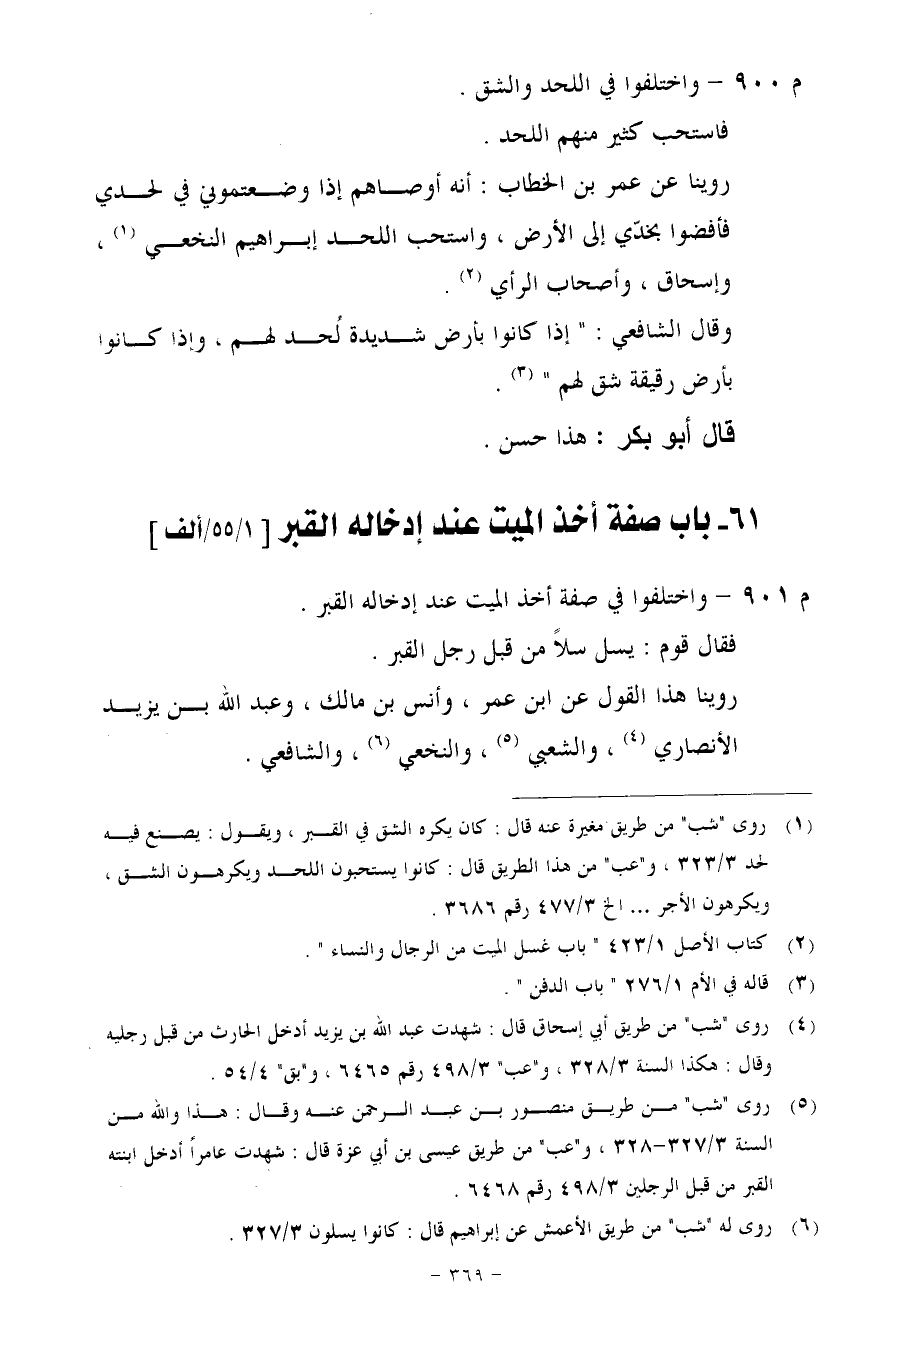 م ٩٠٠ – واختلفوا في اللحد والشق .
فاستحب كثير منهم اللحد .
روينا عن عمر بن الخطاب : أنه أوصاهم إذا وضعتموني في لحدي
فأفضوا بخدّي إلى الأرض ، واستحب اللحد إبراهيم النخعي (١) ،
وإسحاق ، وأصحاب الرأي (٢) .
وقال الشافعي : " إذا كانوا بأرض شديدة لُحد لهم ، وإذا كانوا
بأرض رقيقة شق لهم " (٣) .
قال أبو بكر : هذا حسن .
٦١- باب صفة أخذ الميت عند إدخاله القبر [ ٥٥/١/ألف ]
م ٩٠١ – واختلفوا في صفة أخذ الميت عند إدخاله القبر .
فقال قوم : يسل سلاً من قبل رجل القبر .
روينا هذا القول عن ابن عمر ، وأنس بن مالك ، وعبد الله بن يزيد
الأنصاري (٤) ، والشعبي (٥) ، والنخعي (٦) ، والشافعي .
(١) روى "شب" من طريق مغيرة عنه قال : كان يكره الشق في القبر ، ويقول : يصنع فيه
لحد ٣٢٣/٣ ، و"عب" من هذا الطريق قال : كانوا يستحبون اللحد ويكرهون الشق ،
ويكرهون الأجر ... الخ ٤٧٧/٣ رقم ٣٦٨٦ .
(٢) كتاب الأصل ٤٢٣/١ " باب غسل الميت من الرجال والنساء " .
(٣) قاله في الأم ٢٧٦/١ " باب الدفن " .
(٤) روى "شب" من طريق أبي إسحاق قال : شهدت عبد الله بن يزيد أدخل الحارث من قبل رجليه
وقال : هكذا السنة ٣٢٨/٣ ، و"عب" ٤٩٨/٣ رقم ٦٤٦٥ ، و"بق" ٥٤/٤ .
(٥) روى "شب" من طريق منصور بن عبد الرحمن عنه وقال : هذا والله من
السنة ٣٢٧/٣-٣٢٨ ، و"عب" من طريق عيسى بن أبي عزة قال : شهدت عامراً أدخل ابنته
القبر من قبل الرجلين ٤٩٨/٣ رقم ٦٤٦٨ .
(٦) روى له "شب" من طريق الأعمش عن إبراهيم قال : كانوا يسلون ٣٢٧/٣ .
– ٣٦٩ –